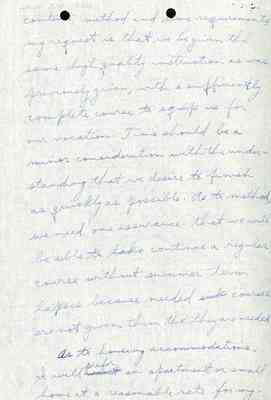 content method and time requirements
my request is that we be given the
same high quality instruction as was
previously given, with a sufficiently
complete course to equip us for
our vocation. Time should be a
minor consideration with the under-
standing that we desire to finish
as quickly as possible. As to method
we need one assurance: that we will
be able to take continue a regular
course without summer term
lapses because needed courses
are not given then tho they are needed
As to housing accommodations.
I will an apartment or small
home at a reasonable rate for my-